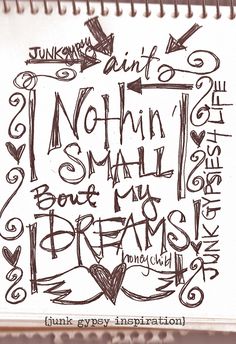 JUNK GYPSY
ain't
Nothin'
SMALL
Bout My
DREAMS
honeychild
JUNK GYPSIES 4 LIFE
{junk gypsy inspiration}